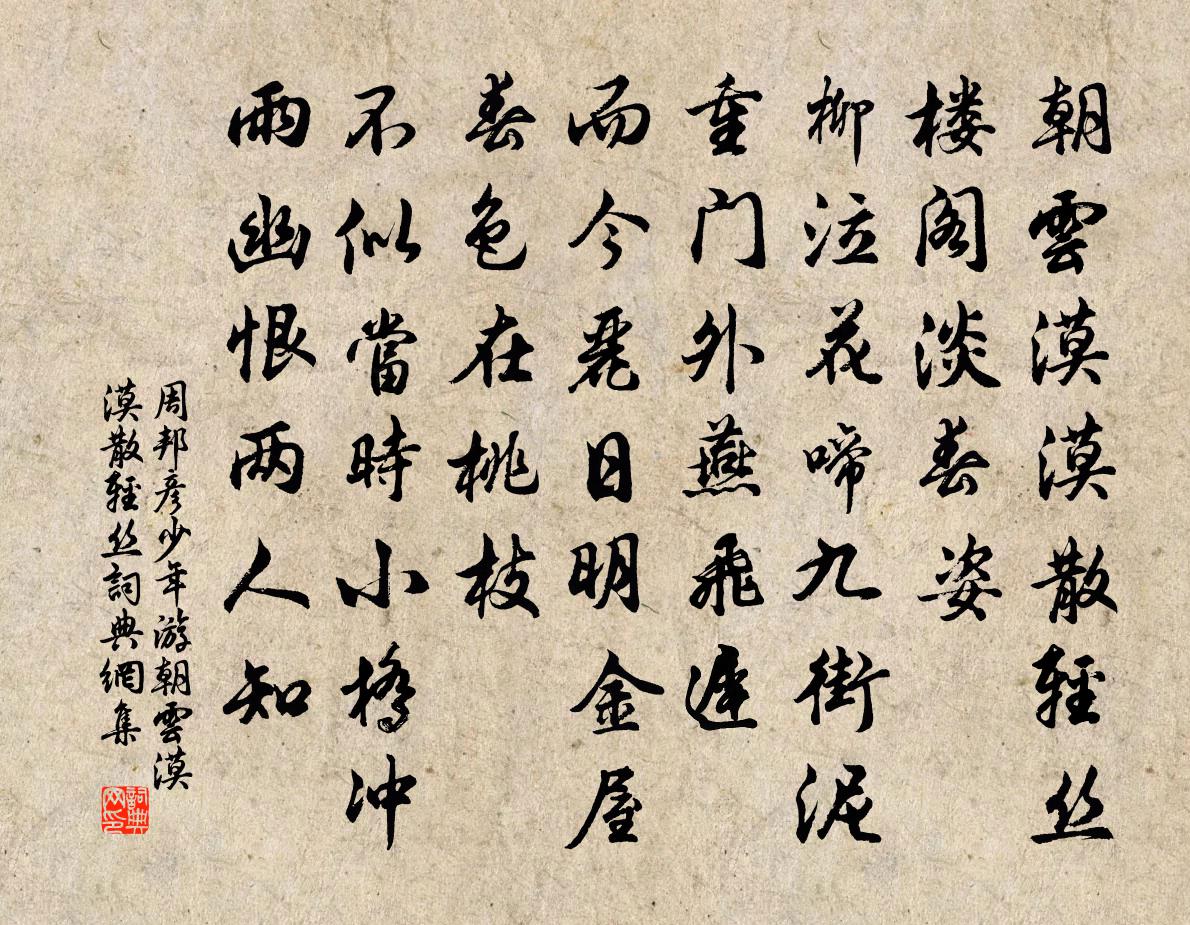 朝雲漠漠散輕丝
楼阁淡春姿
柳泣花啼九街泥
重门外燕飛遲
而今麗日明金屋
春色在桃枝
不似當時小橋冲
雨幽恨两人知
周邦彦少年游朝雲漠
漠散輕丝詞典網集
詞典
网印